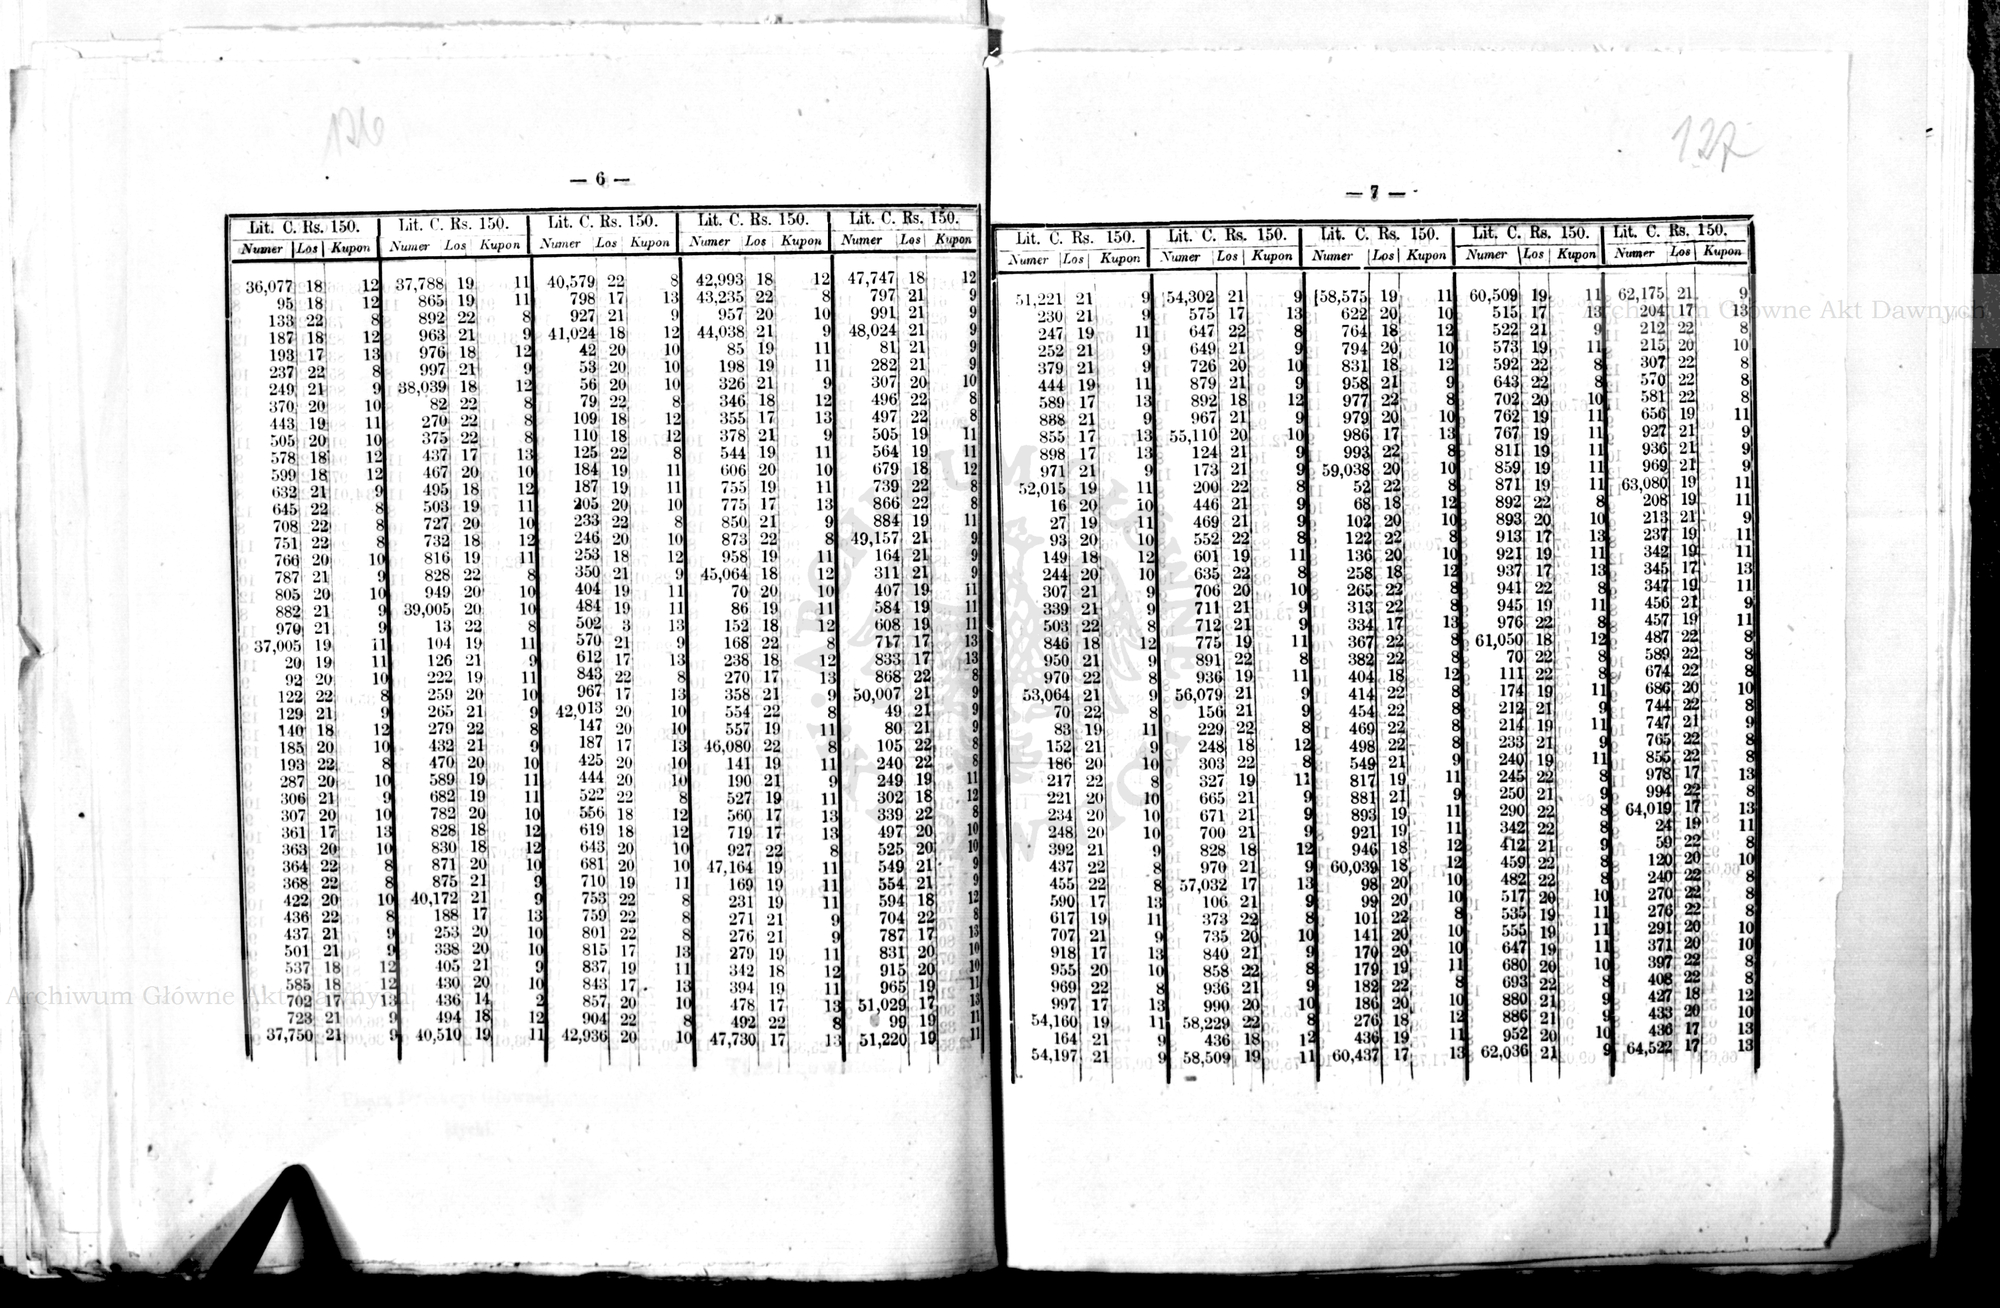 126
— 6 —
Lit. C. Rs. 150.
Numer Los Kupon
36,077 18 12
95 18 12
133 22 8
187 18 12
193 17 13
237 22 8
249 21 9
370 20 10
443 19 11
505 20 10
578 18 12
599 18 12
632 21 9
645 22 8
708 22 8
751 22 8
766 20 10
787 21 9
805 20 10
882 21 9
970 21 9
37,005 19 11
20 19 11
92 20 10
122 22 8
129 21 9
140 18 12
185 20 10
193 22 8
287 20 10
306 21 9
307 20 10
361 17 13
363 20 10
364 22 8
368 22 8
422 20 10
436 22 8
437 21 9
501 21 9
537 18 12
585 18 12
702 17 13
723 21 9
37,750 21 9
Lit. C. Rs. 150.
Numer Los Kupon
37,788 19 11
865 19 11
892 22 8
963 21 9
976 18 12
997 21 9
38,039 18 12
82 22 8
270 22 8
375 22 8
437 17 13
467 20 10
495 18 12
503 19 11
727 20 10
732 18 12
816 19 11
828 22 8
949 20 10
39,005 20 10
13 22 8
104 19 11
126 21 9
222 19 11
259 20 10
265 21 9
279 22 8
432 21 9
470 20 10
589 19 11
682 19 11
782 20 10
828 18 12
830 18 12
871 20 10
875 21 9
40,172 21 9
188 17 13
253 20 10
338 20 10
405 21 9
430 20 10
436 14 2
494 18 12
40,510 19 11
Lit. C. Rs. 150.
Numer Los Kupon
40,579 22 8
798 17 13
927 21 9
41,024 18 12
42 20 10
53 20 10
56 20 10
79 22 8
109 18 12
110 18 12
125 22 8
184 19 11
187 19 11
205 20 10
233 22 8
246 20 10
253 18 12
350 21 9
404 19 11
484 19 11
502 3 13
570 21 9
612 17 13
843 22 8
967 17 13
42,013 20 10
147 20 10
187 17 13
425 20 10
444 20 10
522 22 8
556 18 12
619 18 12
643 20 10
681 20 10
710 19 11
753 22 8
759 22 8
801 22 8
815 17 13
837 19 11
843 17 13
857 20 10
904 22 8
42,936 20 10
Lit. C. Rs. 150.
Numer Los Kupon
42,993 18 12
43,235 22 8
957 20 10
44,038 21 9
85 19 11
198 19 11
326 21 9
346 18 12
355 17 13
378 21 9
544 19 11
606 20 10
755 19 11
775 17 13
850 21 9
873 22 8
958 19 11
45,064 18 12
70 20 10
86 19 11
152 18 12
168 22 8
238 18 12
270 17 13
358 21 9
554 22 8
557 19 11
46,080 22 8
141 19 11
190 21 9
527 19 11
560 17 13
719 17 13
927 22 8
47,164 19 11
169 19 11
231 19 11
271 21 9
276 21 9
279 19 11
342 18 12
394 19 11
478 17 13
492 22 8
47,730 17 13
Lit. C. Rs. 150.
Numer Los Kupon
47,747 18 12
797 21 9
991 21 9
48,024 21 9
81 21 9
282 21 9
307 20 10
496 22 8
497 22 8
505 19 11
564 19 11
679 18 12
739 22 8
866 22 8
884 19 11
49,157 21 9
164 21 9
311 21 9
407 19 11
584 19 11
608 19 11
717 17 13
833 17 13
868 22 8
50,007 21 9
49 21 9
80 21 9
105 22 8
240 22 8
249 19 11
302 18 12
339 22 8
497 20 10
525 20 10
549 21 9
554 21 9
594 18 12
704 22 8
787 17 13
831 20 10
915 20 10
965 19 11
51,029 17 13
99 19 11
51,220 19 11
127
— 7 —
Lit. C. Rs. 150.
Numer Los Kupon
51,221 21 9
230 21 9
247 19 11
252 21 9
379 21 9
444 19 11
589 17 13
888 21 9
855 17 13
898 17 13
971 21 9
52,015 19 11
16 20 10
27 19 11
93 20 10
149 18 12
244 20 10
307 21 9
339 21 9
503 22 8
846 18 12
950 21 9
970 22 8
53,064 21 9
70 22 8
83 19 11
152 21 9
186 20 10
217 22 8
221 20 10
234 20 10
248 20 10
392 21 9
437 22 8
455 22 8
590 17 13
617 19 11
707 21 9
918 17 13
955 20 10
969 22 8
997 17 13
54,160 19 11
164 21 9
54,197 21 9
Lit. C. Rs. 150.
Numer Los Kupon
54,302 21 9
575 17 13
647 22 8
649 21 9
726 20 10
879 21 9
892 18 12
967 21 9
55,110 20 10
124 21 9
173 21 9
200 22 8
446 21 9
469 21 9
552 22 8
601 19 11
635 22 8
706 20 10
711 21 9
712 21 9
775 19 11
891 22 8
936 19 11
56,079 21 9
156 21 9
229 22 8
248 18 12
303 22 8
327 19 11
665 21 9
671 21 9
700 21 9
828 18 12
970 21 9
57,032 17 13
106 21 9
373 22 8
735 20 10
840 21 9
858 22 8
936 21 9
990 20 10
58,229 22 8
436 18 12
58,509 19 11
Lit. C. Rs. 150.
Numer Los Kupon
58,575 19 11
622 20 10
764 18 12
794 20 10
831 18 12
958 21 9
977 22 8
979 20 10
986 17 13
993 22 8
59,038 20 10
52 22 8
68 18 12
102 20 10
122 22 8
136 20 10
258 18 12
265 22 8
313 22 8
334 17 13
367 22 8
382 22 8
404 18 12
414 22 8
454 22 8
469 22 8
498 22 8
549 21 9
817 19 11
881 21 9
893 19 11
921 19 11
946 18 12
60,039 18 12
98 20 10
99 20 10
101 22 8
141 20 10
170 20 10
179 19 11
182 22 8
186 20 10
276 18 12
436 19 11
60,437 17 13
Lit. C. Rs. 150.
Numer Los Kupon
60,509 19 11
515 17 13
522 21 9
573 19 11
592 22 8
643 22 8
702 20 10
762 19 11
767 19 11
811 19 11
859 19 11
871 19 11
892 22 8
893 20 10
913 17 13
921 19 11
937 17 13
941 22 8
945 19 11
976 22 8
61,050 18 12
70 22 8
111 22 8
174 19 11
212 21 9
214 19 11
233 21 9
240 19 11
245 22 8
250 21 9
290 22 8
342 22 8
412 21 9
459 22 8
482 22 8
517 20 10
535 19 11
555 19 11
647 19 11
680 20 10
693 22 8
880 21 9
886 21 9
952 20 10
62,036 21 9
Lit. C. Rs. 150.
Numer Los Kupon
62,175 21 9
204 17 13
212 22 8
215 20 10
307 22 8
570 22 8
581 22 8
656 19 11
927 21 9
936 21 9
969 21 9
63,080 19 11
208 19 11
213 21 9
237 19 11
342 19 11
345 17 13
347 19 11
456 21 9
457 19 11
487 22 8
589 22 8
674 22 8
686 20 10
744 22 8
747 21 9
765 22 8
855 22 8
978 17 13
994 22 8
64,019 17 13
24 19 11
59 22 8
120 20 10
240 22 8
270 22 8
276 22 8
291 20 10
371 20 10
397 22 8
408 22 8
427 18 12
433 20 10
436 17 13
64,522 17 13
Archiwum Główne Akt Dawnych
Archiwum Główne Akt Dawnych